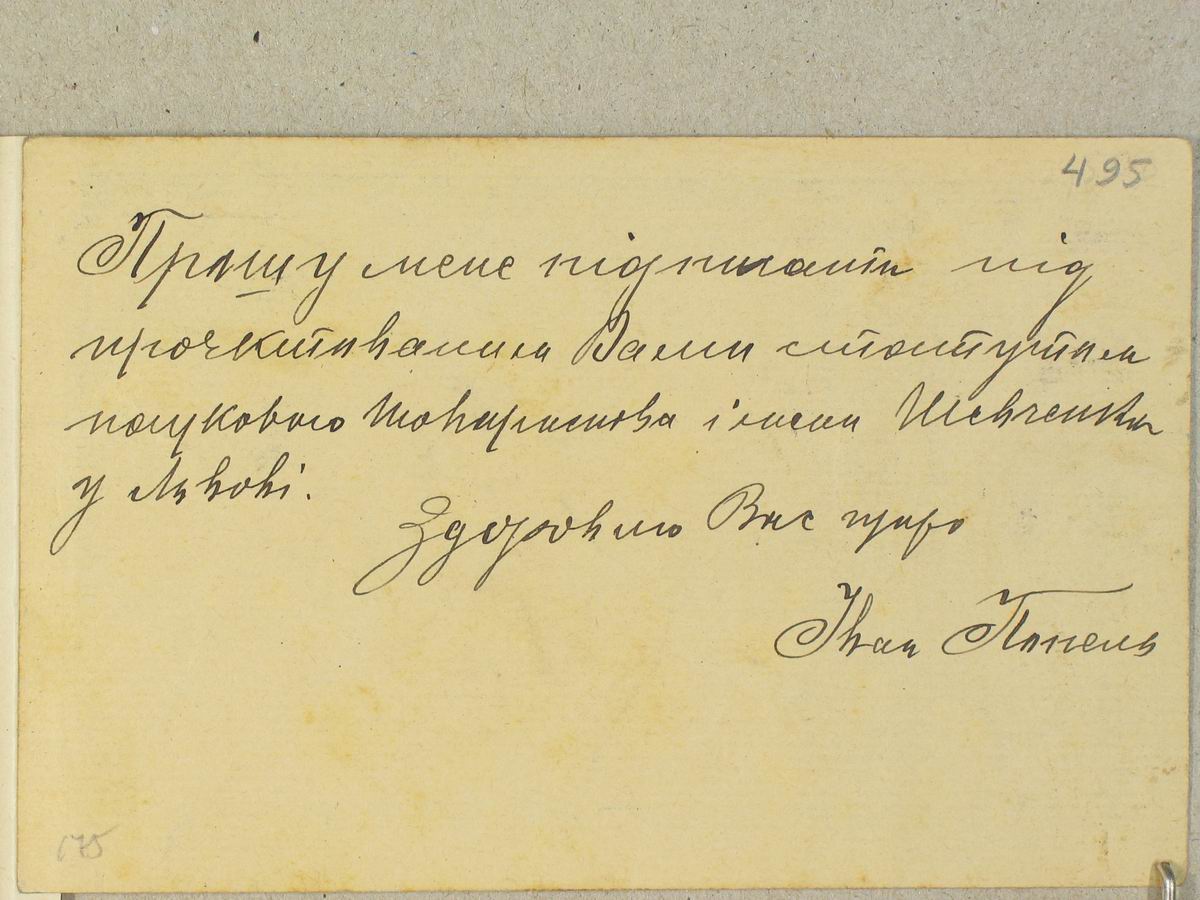 495
Прошу мене підписати під
проектованим Вами статутом
наукового товариства імени Шевченка
у Львові.
Здоровлю Вас щиро
Іван Попель
175